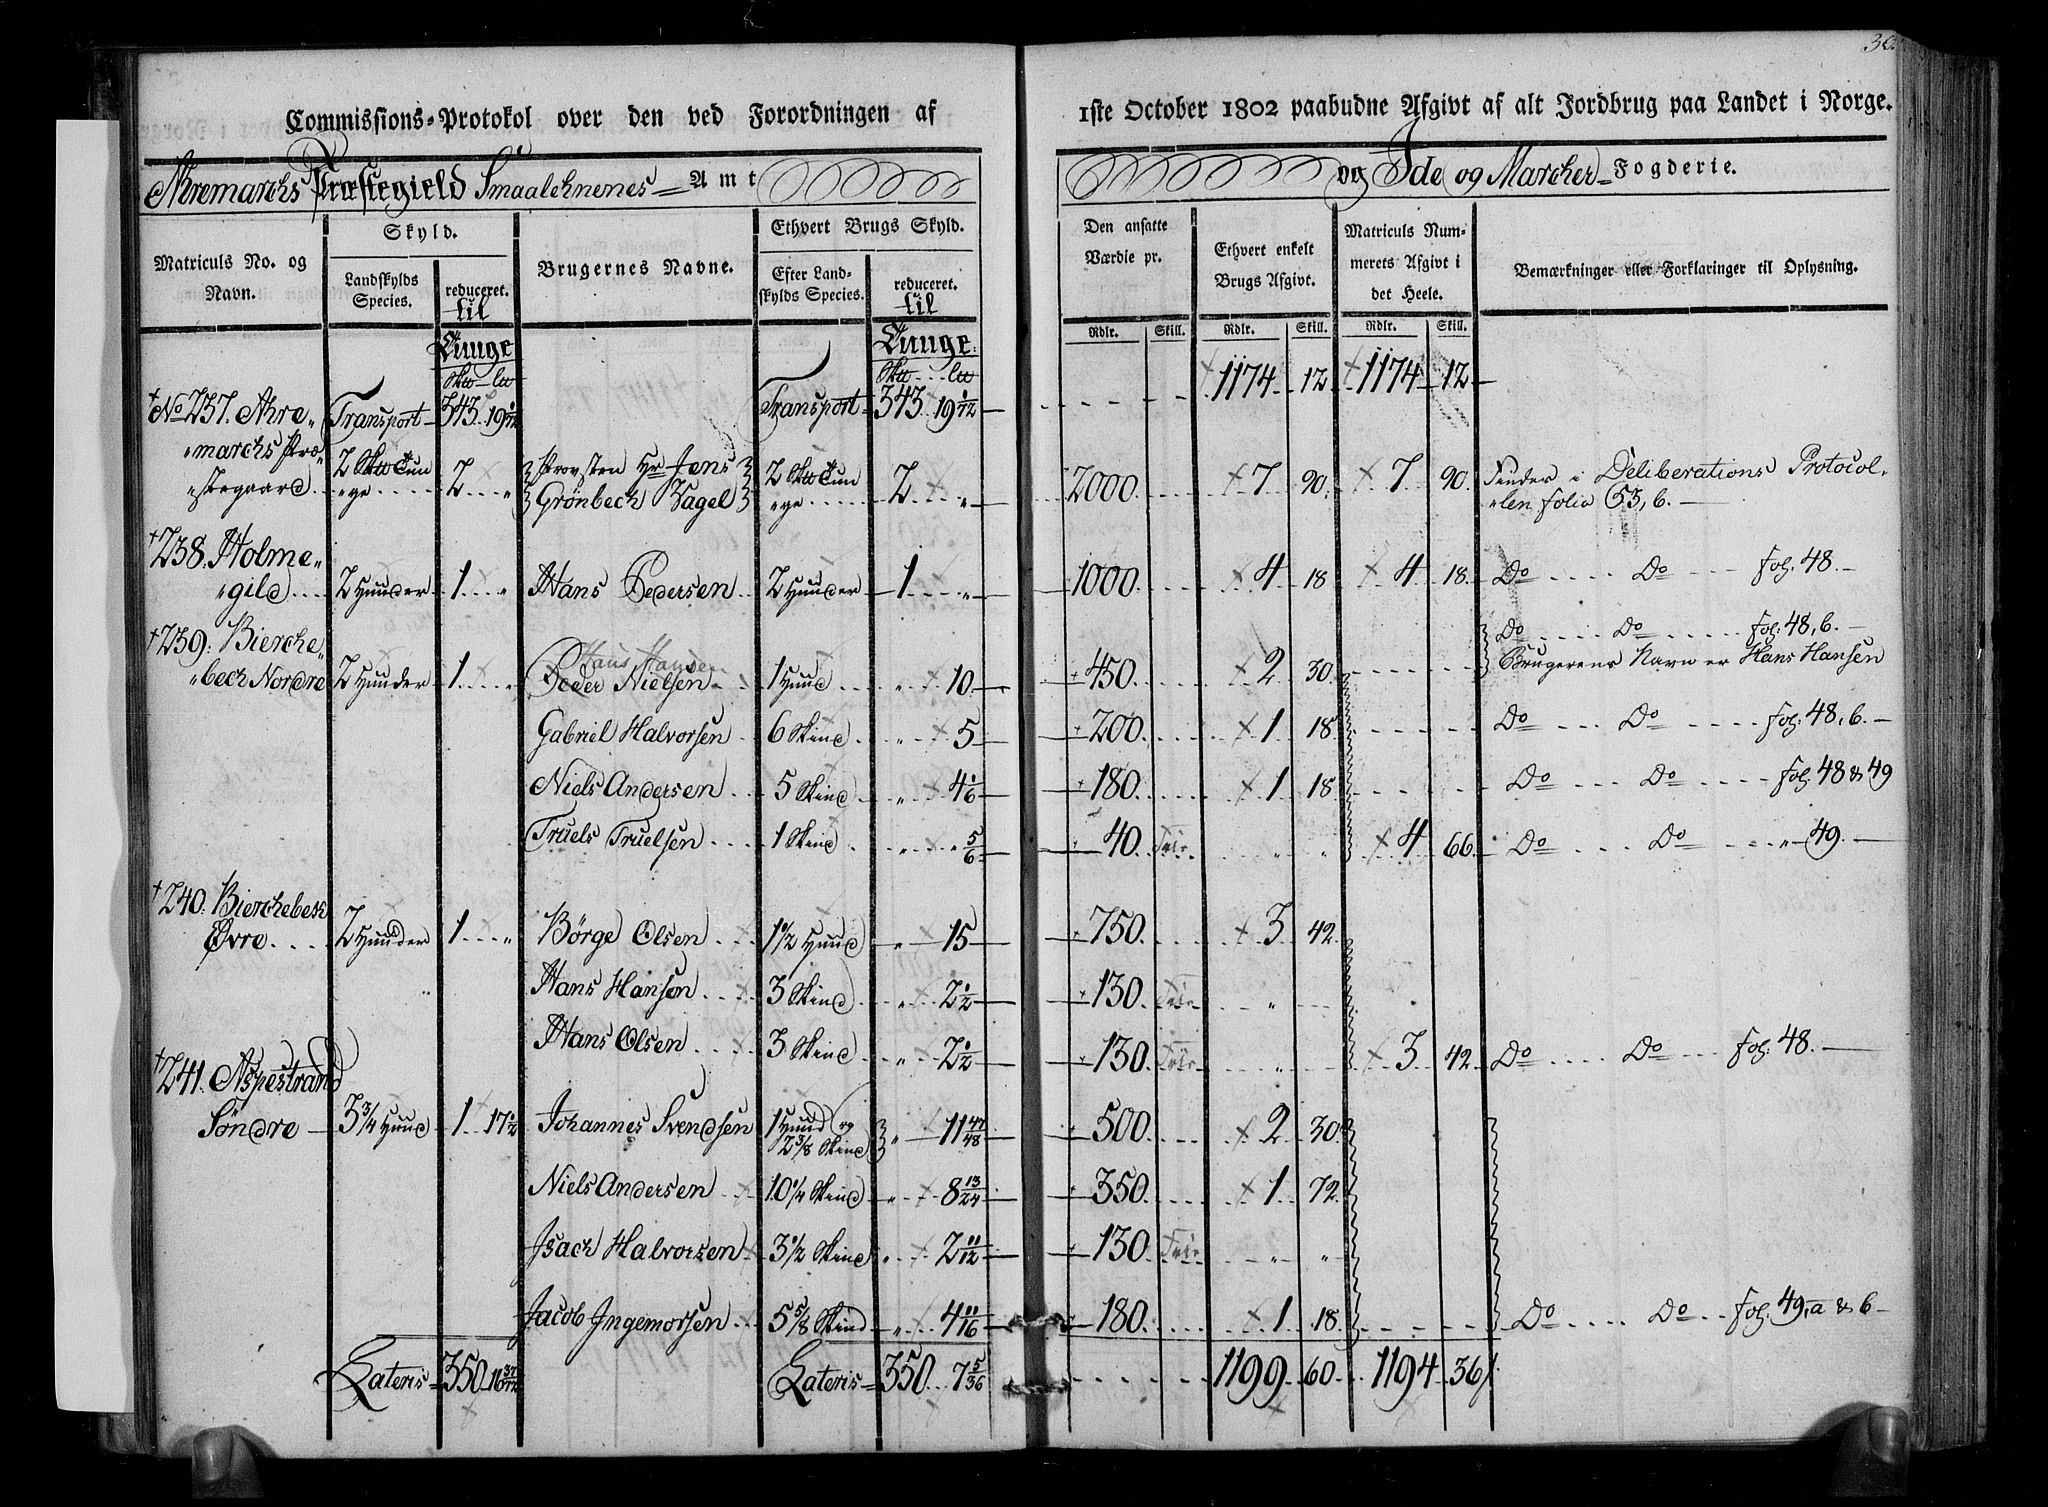 30.
Commissions-Protokol over den ved Forordningen af 1ste October 1802 paabudne Afgivt af alt Jordbrug paa Landet i Norge.
Aremarchs Præstegield Smaalehnenes Amt og Ide og Marcher Fogderie.
Matriculs No. og Navn.
Skyld.
Landskylds Species.
reduceret. til
Tunge
Brugernes Navne.
Ethvert Brugs Skyld.
Efter Landskylds Species.
reduceret. til
Tunge
Den ansatte Værdie pr.
Rdlr. Skill.
Ethvert enkelt Brugs Afgivt.
Rdlr. Skill.
Matriculs Nummerets Afgivt i det Heele.
Rdlr. Skill.
Bemærkninger eller Forklaringer til Oplysning.
Transport 343 19 1/72 Transport 343 19 1/72 1174 12 1174 12
No 237. Akre„
„marchs Præ„
„stegaard 2 Sk℔ Tun„ge 2 „ Provsten Hr Jens Grønbech Vagel 2 Sk℔ Tun„ge 2 „ 2000 7 90 7 90 Findes i Deliberations Protocol„
„len folio 53, b.
238. Holme„
„gild 2 Huuder 1 „ Hans Pedersen 2 Huuder 1 „ 1000 4 18 4 18 Do Do fol: 48.
239. Bierche„
„bech Nordre 2 Huuder 1 „ Hans Hansen
Peder Nielsen 1 Huud „ 10 450 2 30 Do Do fol: 48, b.
Brugerens Navn er Hans Hansen
Gabriel Halvorsen 6 Skind „ 5 200 1 18 Do Do fol: 48, b.
Niels Andersen 5 Skind „ 4 1/6 180 1 18 Do Do fol: 48 & 49
Truels Truelsen 1 Skind „ „ 5/6 40 Frie „ „ 4 66 Do Do „ 49.
240. Bierchebech
Øvre 2 Huuder 1 „ Børge Olsen 1 1/2 Huud „ 15 750 3 42
Hans Hansen 3 Skind „ 2 1/2 130 Frie „
Hans Olsen 3 Skind „ 2 1/2 130 Frie „ 3 42 Do Do fol: 48.
241. Aspestrand
Søndre 3 3/4 Huud 1 17 1/2 Johannes Svendsen 1 Huud og
2 3/8 Skind „ 11 47/48 500 2 30
Niels Andersen 10 1/4 Skind „ 8 13/24 350 1 72
Isach Halvorsen 3 1/2 Skind „ 2 11/12 130 Frie „ „
Jacob Ingemorsen 5 5/8 Skind „ 4 11/16 180 1 18 Do Do fol: 49, a & b
Lateris 350 16 37/72 Lateris 350 7 5/36 1199 60 1194 36